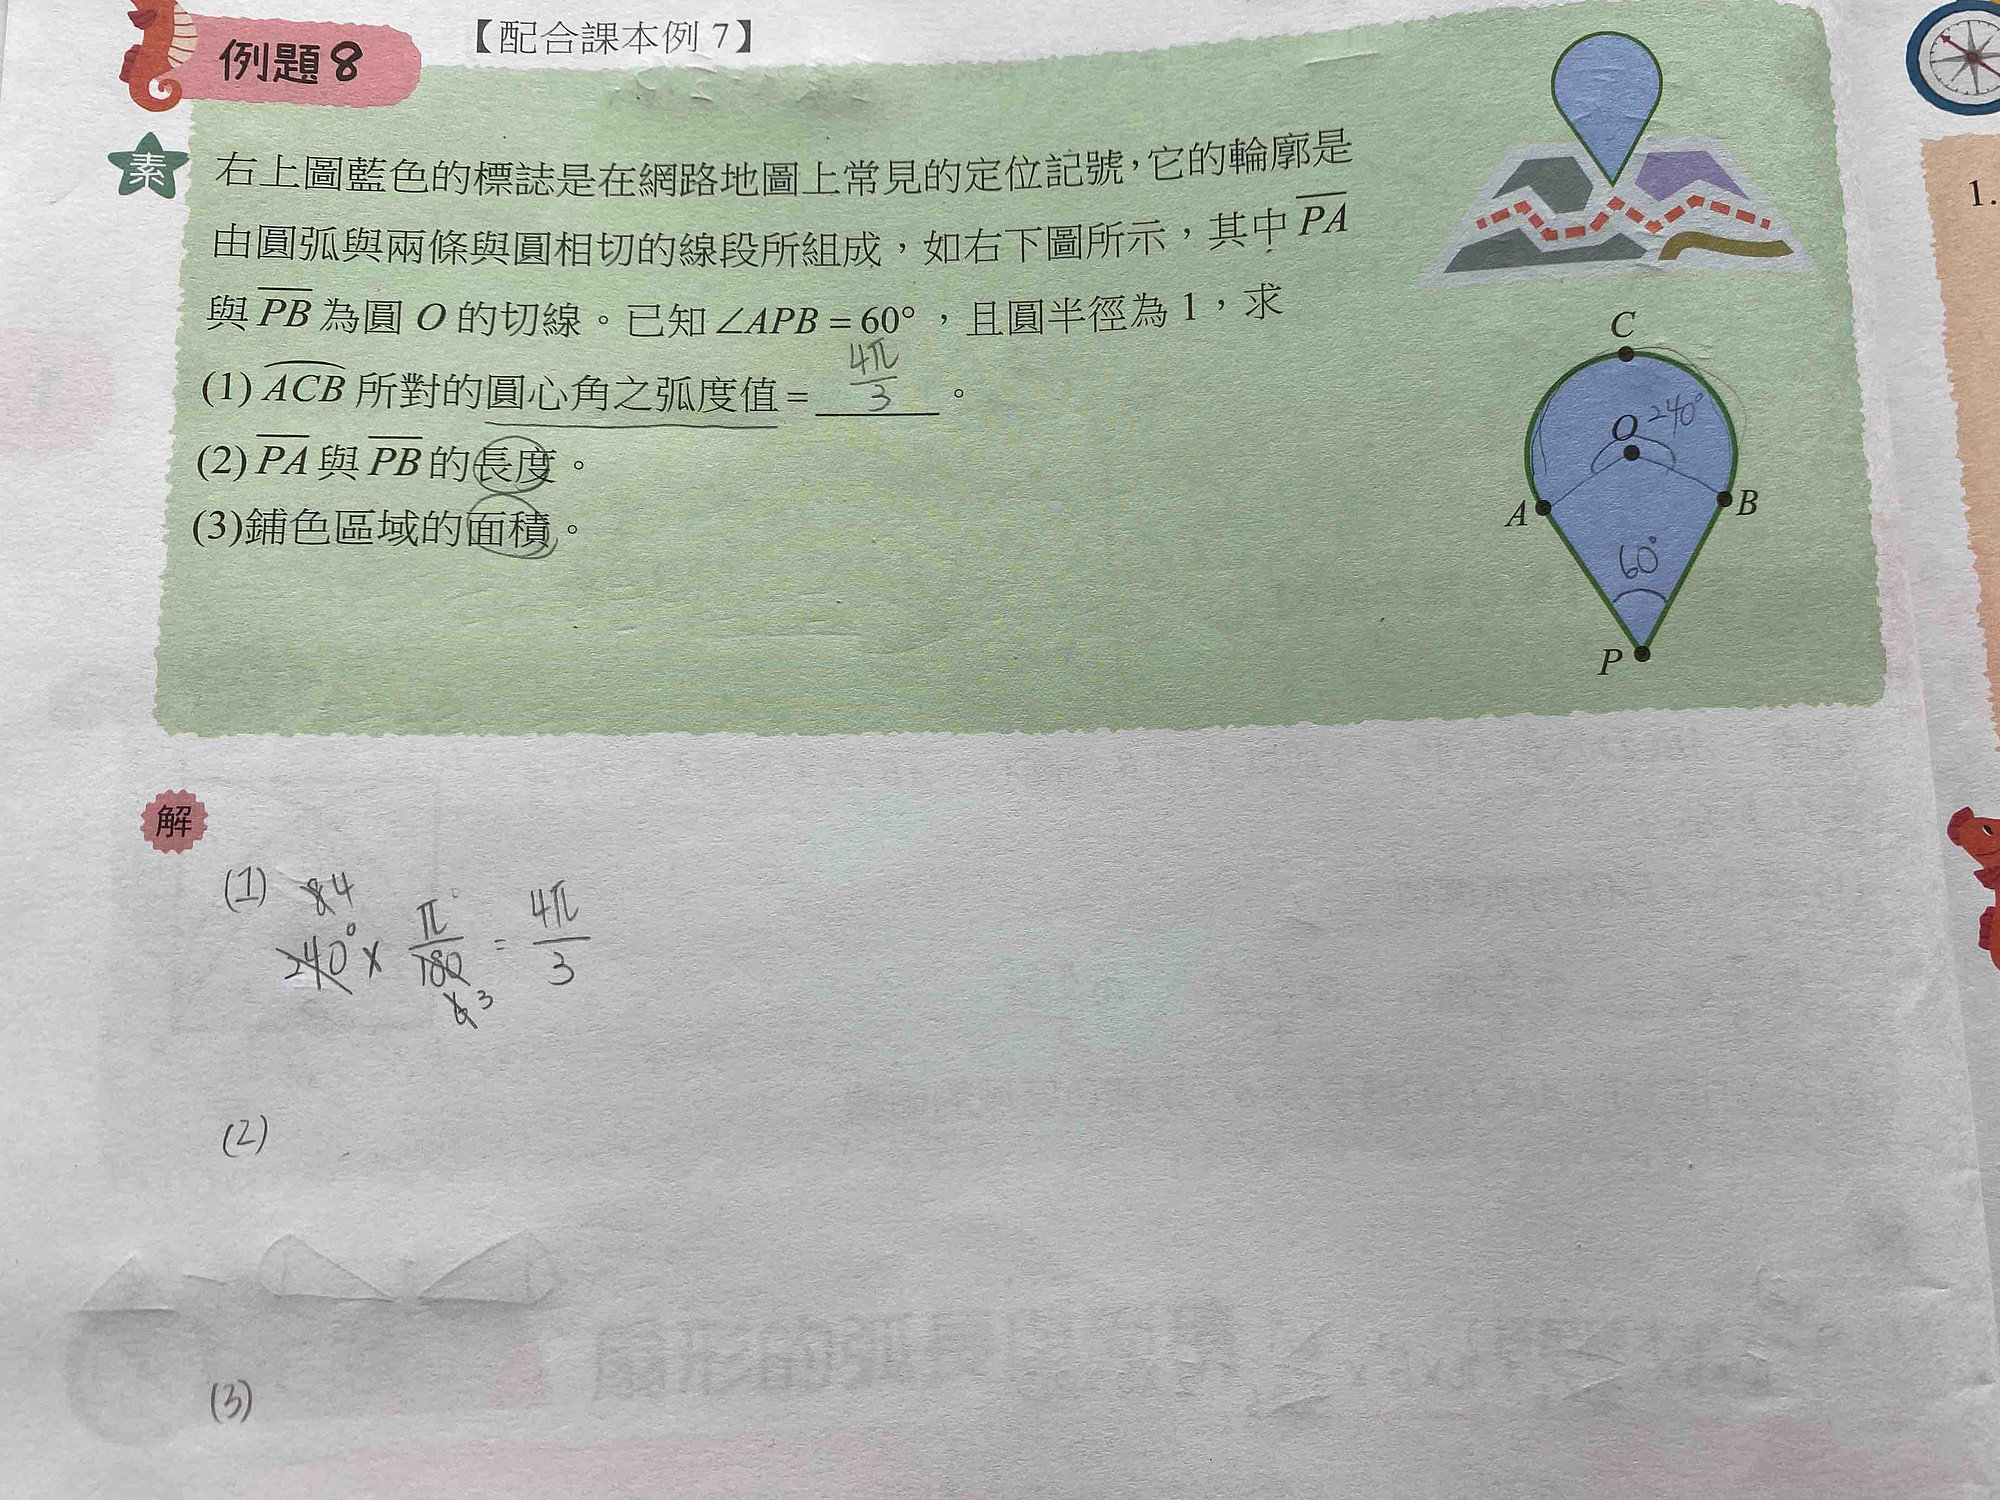 例題8
【配合課本例 7】
素
右上圖藍色的標誌是在網路地圖上常見的定位記號，它的輪廓是
由圓弧與兩條與圓相切的線段所組成，如右下圖所示，其中 PA
與 PB 為圓 O 的切線。已知∠APB = 60°，且圓半徑為 1，求
(1) ACB 所對的圓心角之弧度值 = 4π/3 。
(2) PA 與 PB 的長度。
(3)鋪色區域的面積。
C
O 240°
A
B
60°
P
1.
解
(1) 8 4
240° × π/180 = 4π/3
6 3
(2)
(3)